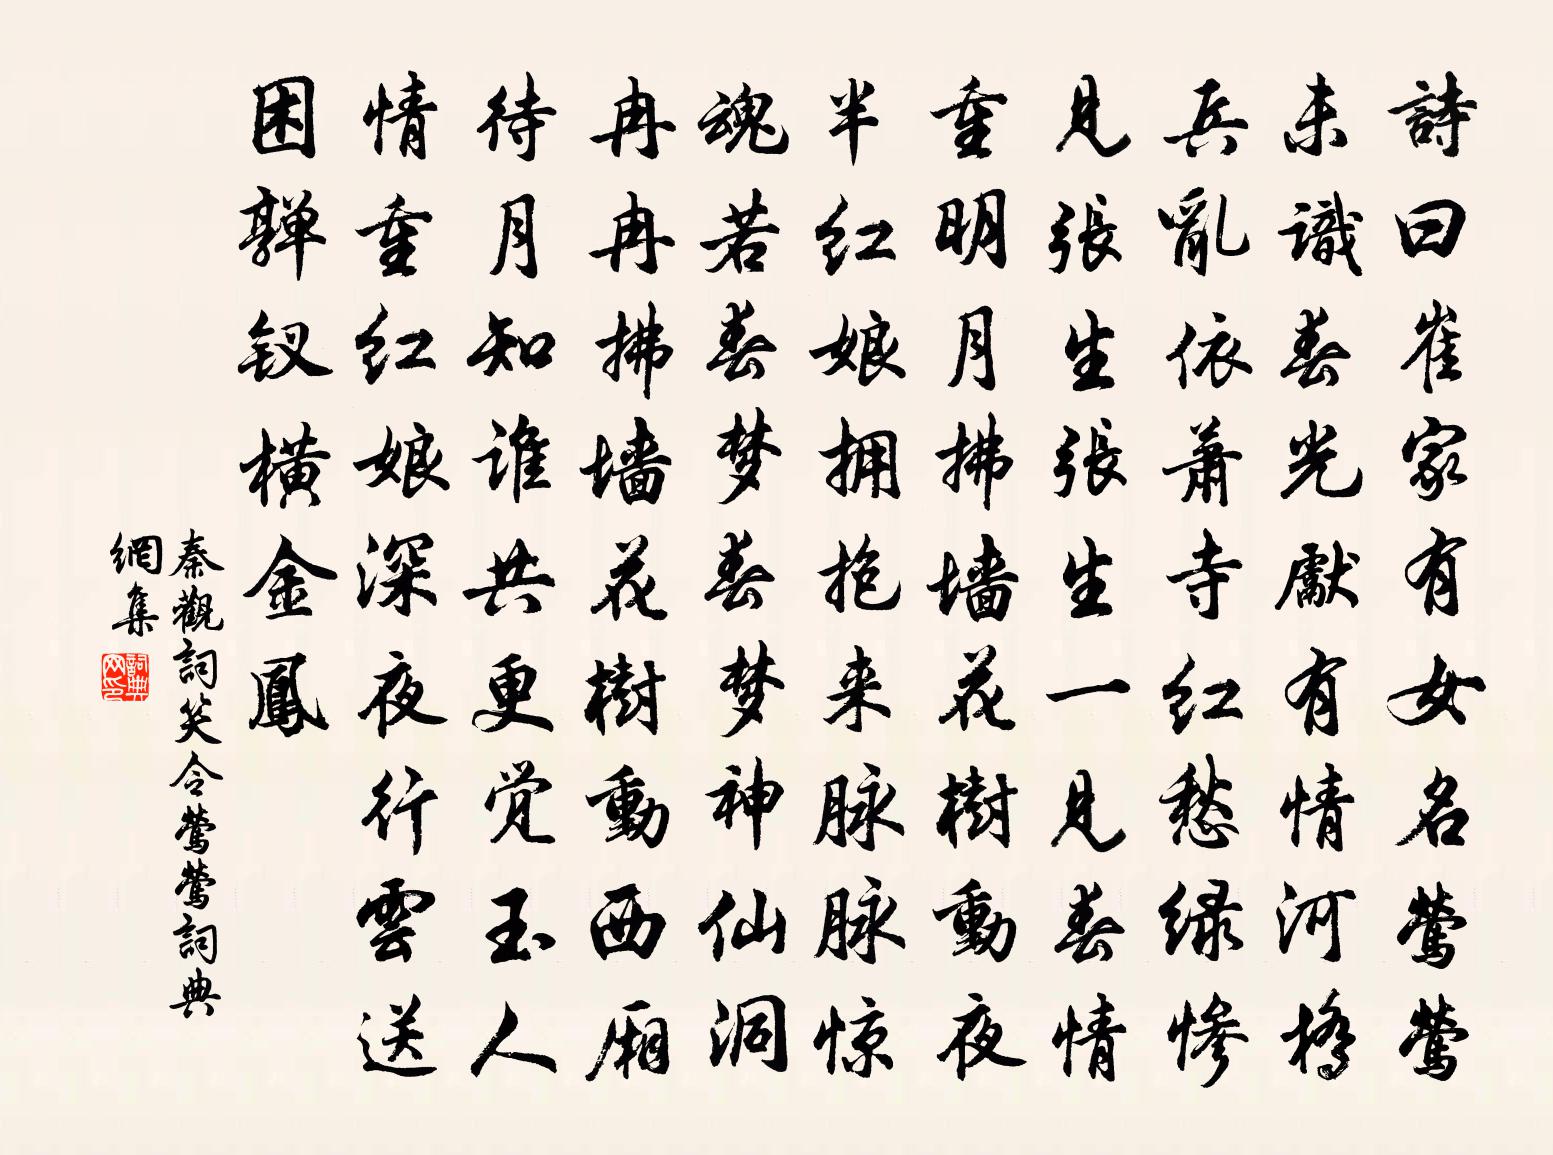 詩曰崔家有女名鶯鶯
未識春光獻有情河橋
兵亂依蕭寺红愁绿惨
見張生張生一見春情
重明月拂墙花樹動夜
半红娘拥抱来脉脉惊
魂若春梦春梦神仙洞
冉冉拂墙花樹動西厢
待月知谁共更觉玉人
情重红娘深夜行雲送
困嚲钗横金鳳
秦觀詞笑令鶯鶯詞典
網集
詞典
网印